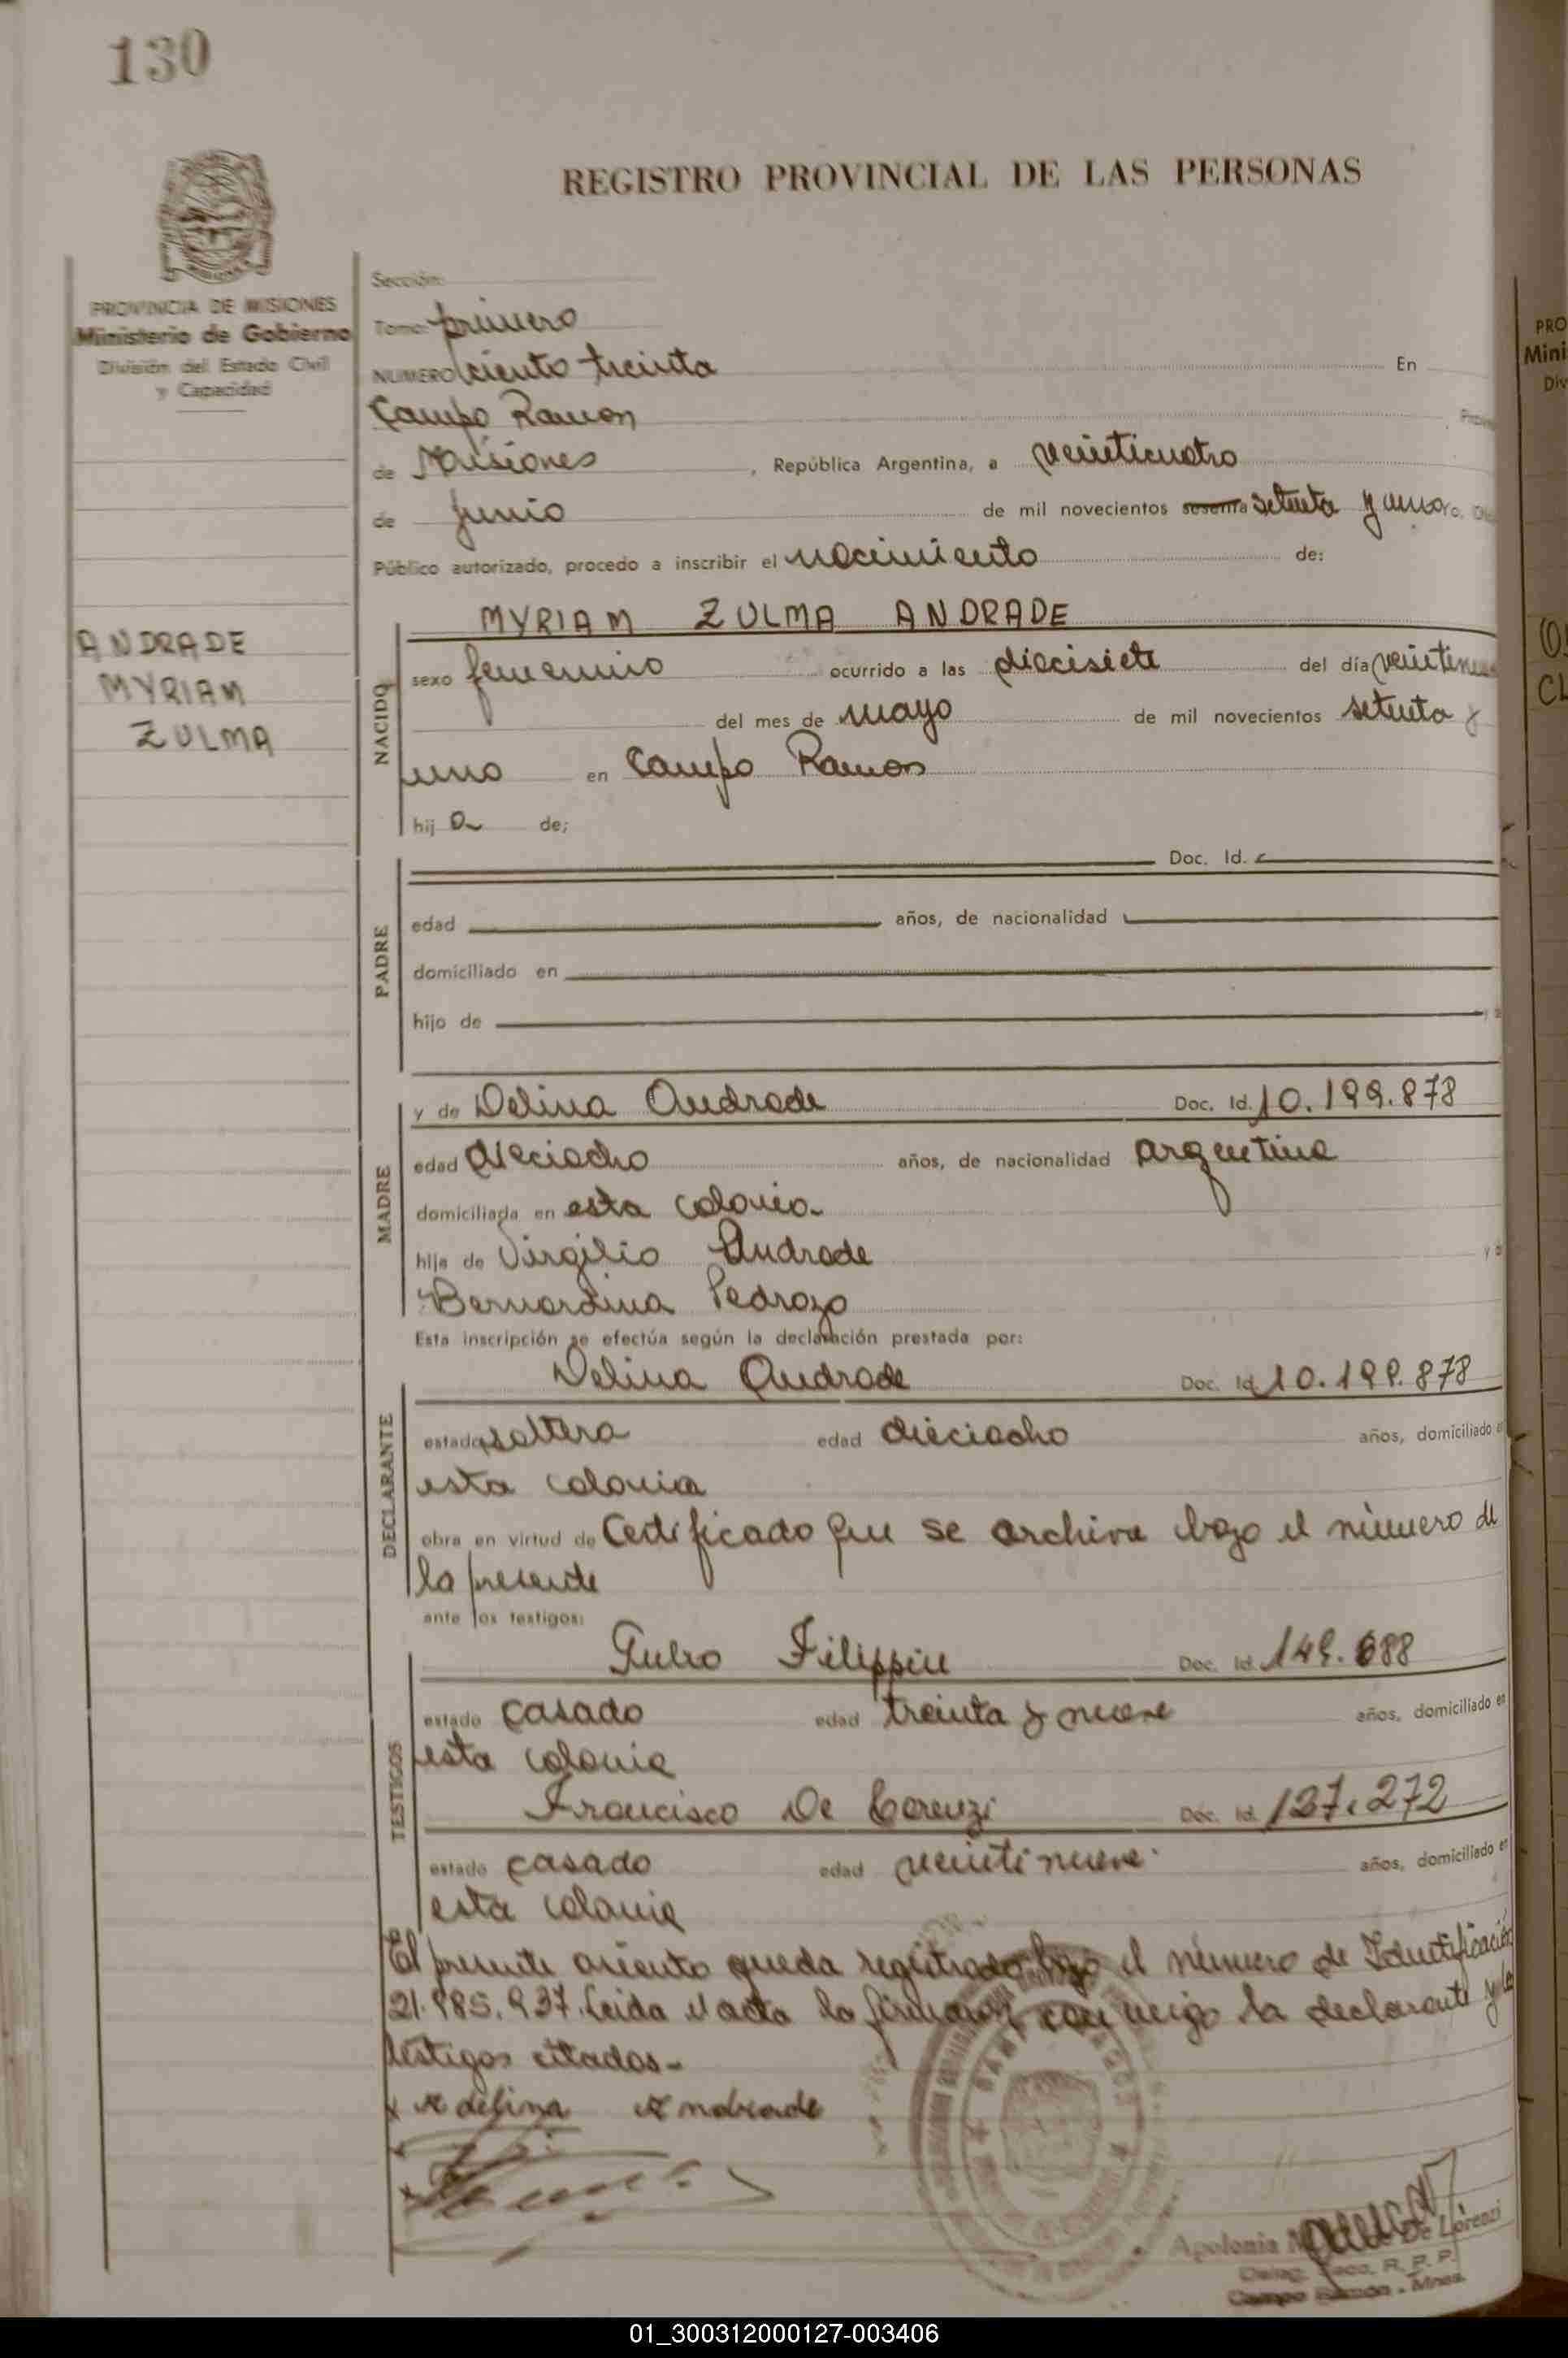 130
REGISTRO PROVINCIAL DE LAS PERSONAS
PROVINCIA DE MISIONES
Ministerio de Gobierno
División del Estado Civil
y Capacidad
ANDRADE
MYRIAM
ZULMA
Sección:
Tomo: primero
NUMERO ciento treinta En
Campo Ramon
de Misiones, República Argentina, a veinticuatro
de Junio de mil novecientos sesenta setenta y uno
Público autorizado, procedo a inscribir el nacimiento de:
NACIDO
MYRIAM ZULMA ANDRADE
sexo femenino ocurrido a las diecisiete del día
del mes de mayo de mil novecientos setenta y
uno en Campo Ramon
hij a de;
PADRE
Doc. Id.
edad años, de nacionalidad
domiciliado en
hijo de
MADRE
y de Delina Andrade Doc. Id. 10.199.878
edad dieciocho años, de nacionalidad argentina
domiciliada en esta colonia
hija de Virgilio Andrade y
Bernardina Pedrozo
Esta inscripción se efectúa según la declaración prestada por:
DECLARANTE
Delina Andrade Doc. Id. 10.199.878
estado soltera edad dieciocho años, domiciliado
esta colonia
obra en virtud de Certificado que se archiva bajo el número de
la presente
ante los testigos:
TESTIGOS
Filippin Doc. Id. 149.688
estado casado edad treinta y nueve años, domiciliado en
esta colonia
Francisco De Lorenzi Doc. Id. 137.272
estado casado edad veintinueve años, domiciliado en
esta colonia
El presente asiento queda registrado bajo el número de Identificación
21.985.937. Leida el acta la firmaron conmigo la declarante y los
testigos citados-
Andrade
Apolonia De Lorenzi
R. P. P.
Campo Ramón - Mnes.
PRO
Mini
Div
01_300312000127-003406